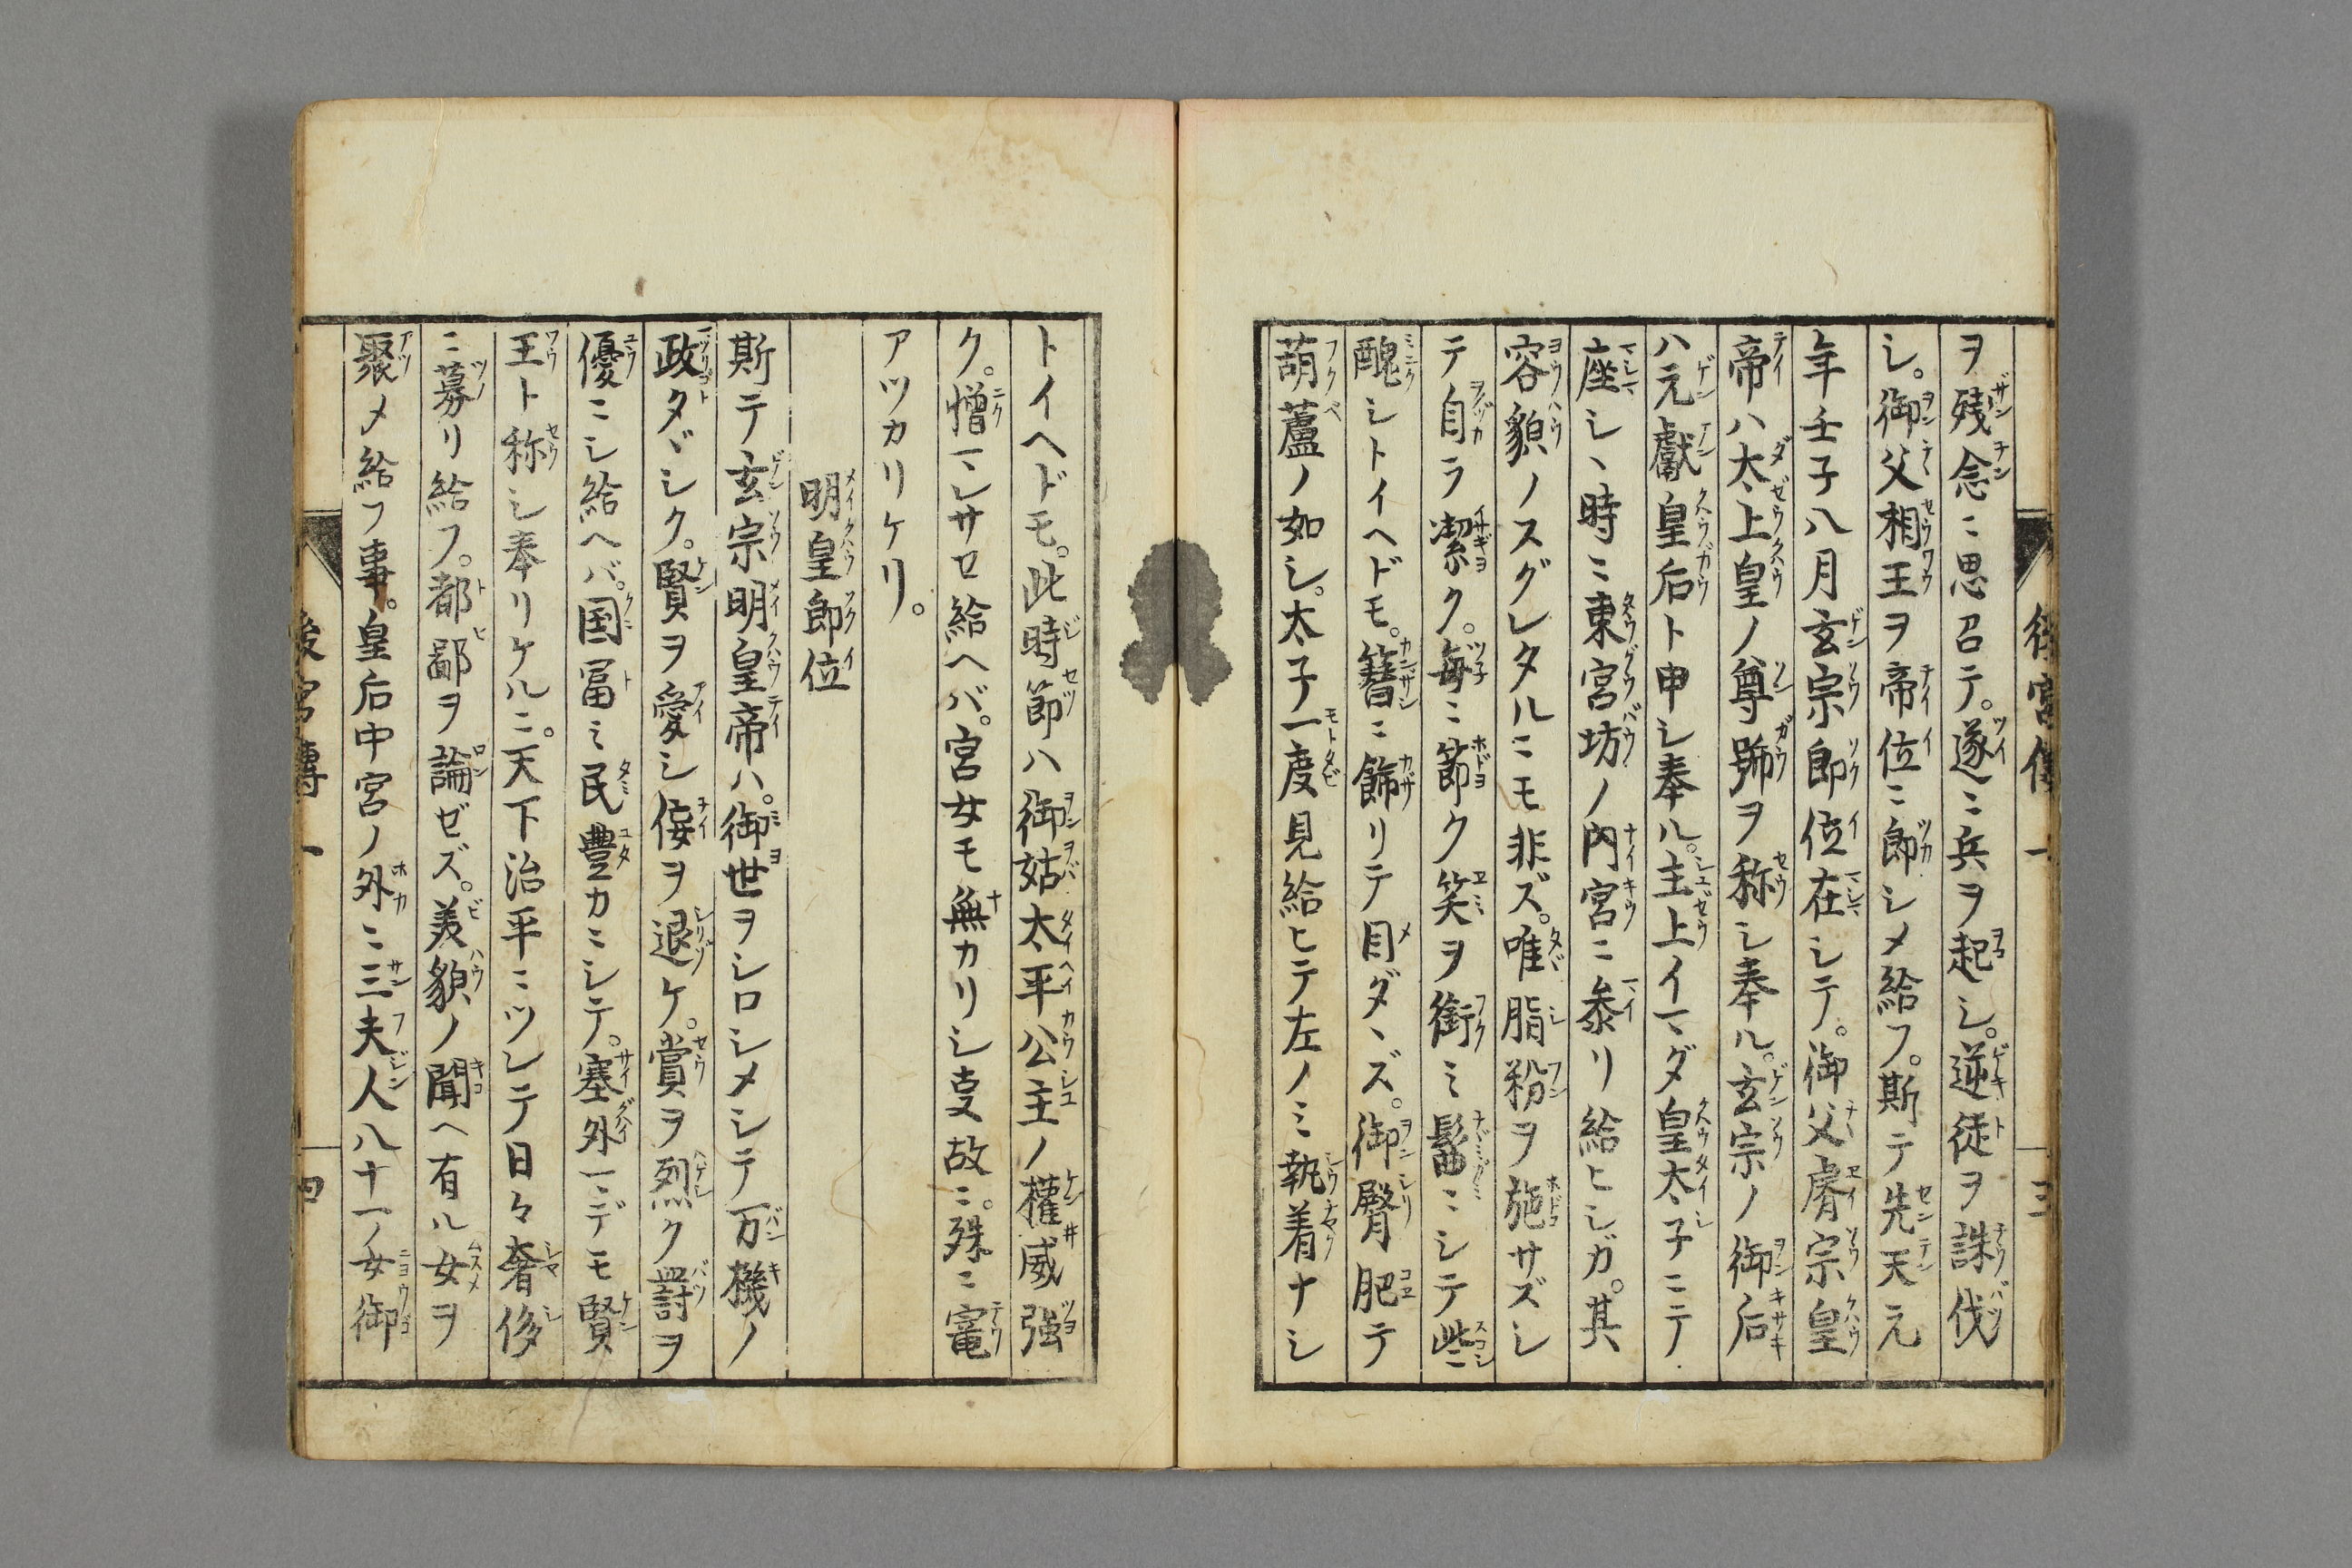 後宮傳 一 三
ヲ残念ニ思召テ。遂ニ兵ヲ起シ。逆徒ヲ誅伐
シ。御父相王ヲ帝位ニ即シメ給フ。斯テ先天元
年壬子八月玄宗即位在シテ。御父睿宗皇
帝ハ太上皇ノ尊號ヲ称シ奉ル。玄宗ノ御后
ハ元獻皇后ト申シ奉ル。主上イマダ皇太子ニテ
座シヽ時ニ東宮坊ノ内宮ニ参リ給ヒシガ。其
容貌ノスグレタルニモ非ズ。唯脂粉ヲ施サズシ
テ自ラ潔ク。毎ニ節ク笑ヲ銜ミ髷ニシテ些ニ
醜シトイヘドモ。簪ニ飾リテ目ダヽズ。御臀肥テ
葫蘆ノ如シ。太子一度見給ヒテ左ノミ執着ナシ
トイヘドモ。此時節ハ御姑太平公主ノ權威强
ク。憎マレサセ給ヘバ。宮女モ無カリシ叓故ニ。殊ニ寵
アツカリケリ。
明皇即位
斯テ玄宗明皇帝ハ。御世ヲシロシメシテ万機ノ
政タヾシク。賢ヲ愛シ侫ヲ退ケ。賞ヲ烈ク罸ヲ
優ニシ給ヘバ。国冨ミ民豊カニシテ。塞外マデモ賢
王ト称シ奉リケルニ。天下治平ニツレテ日々奢侈
ニ募リ給フ。都鄙ヲ論ゼズ。美貌ノ聞ヘ有ル女ヲ
聚メ給フ事。皇后中宮ノ外ニ三夫人八十一ノ女御
後宮傳 一 四